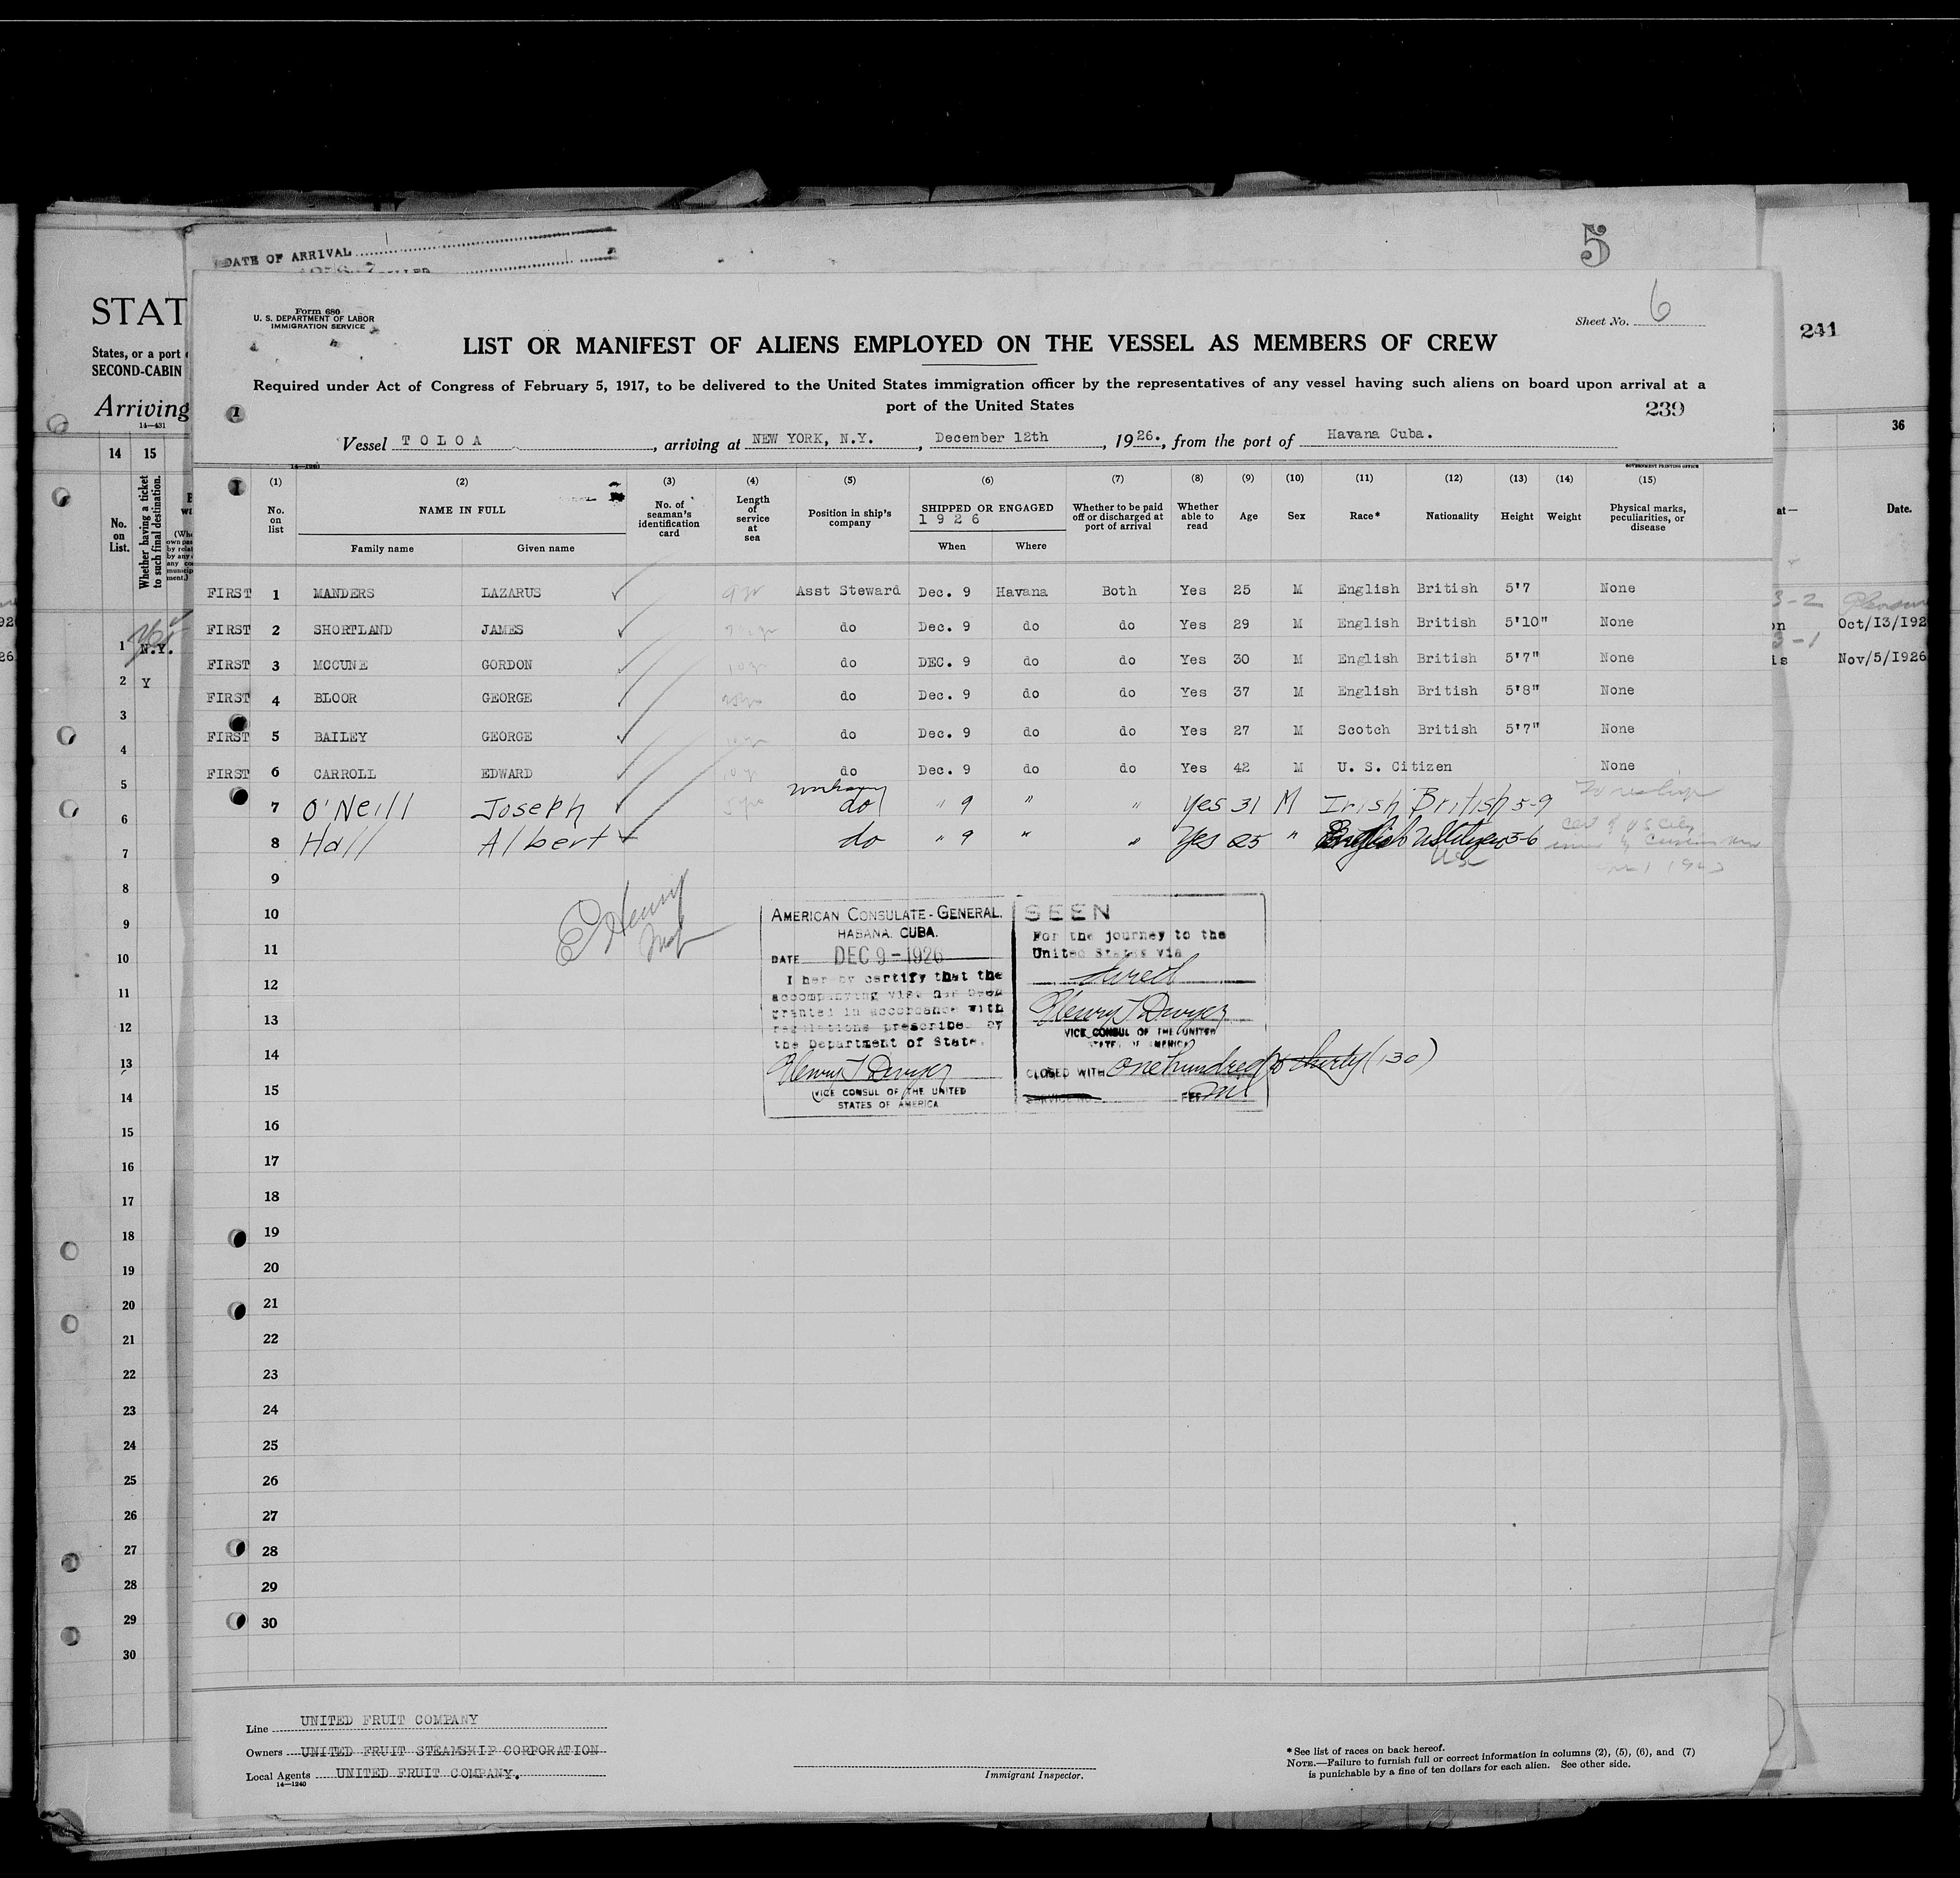 DATE OF ARRIVAL
5
Form 680
U. S. DEPARTMENT OF LABOR
IMMIGRATION SERVICE
Sheet No. 6
LIST OR MANIFEST OF ALIENS EMPLOYED ON THE VESSEL AS MEMBERS OF CREW
Required under Act of Congress of February 5, 1917, to be delivered to the United States immigration officer by the representatives of any vessel having such aliens on board upon arrival at a
port of the United States
239
Vessel TOLOA, arriving at NEW YORK, N.Y., December 12th, 1926., from the port of Havana Cuba.
GOVERNMENT PRINTING OFFICE
(1) (2) (3) (4) (5) (6) (7) (8) (9) (10) (11) (12) (13) (14) (15)
No. on list
NAME IN FULL
Family name Given name
No. of seaman's identification card
Length of service at sea
Position in ship's company
SHIPPED OR ENGAGED
1926
When Where
Whether to be paid off or discharged at port of arrival
Whether able to read
Age
Sex
Race*
Nationality
Height
Weight
Physical marks, peculiarities, or disease
FIRST 1 MANDERS LAZARUS Asst Steward Dec. 9 Havana Both Yes 25 M English British 5'7 None
FIRST 2 SHORTLAND JAMES do Dec. 9 do do Yes 29 M English British 5'10" None
FIRST 3 MCCUNE GORDON 10 yr do DEC. 9 do do Yes 30 M English British 5'7" None
FIRST 4 BLOOR GEORGE do Dec. 9 do do Yes 37 M English British 5'8" None
FIRST 5 BAILEY GEORGE do Dec. 9 do do Yes 27 M Scotch British 5'7" None
FIRST 6 CARROLL EDWARD do Dec. 9 do do Yes 42 M U. S. Citizen None
7 O'Neill Joseph do " 9 " " Yes 31 M Irish British 5-9
8 Hall Albert do " 9 " " Yes 25 " English US Citizen 5-6
US
9
10
11
12
13
14
15
16
17
18
19
20
21
22
23
24
25
26
27
28
29
30
AMERICAN CONSULATE-GENERAL.
HABANA. CUBA.
DATE DEC 9-1926
I hereby certify that the
accompanying visa has been
granted in accordance with
regulations prescribed by
the Department of State.
Henry T Dwyer
VICE CONSUL OF THE UNITED
STATES OF AMERICA
SEEN
For the journey to the
United States via
direct
Henry T Dwyer
VICE CONSUL OF THE UNITED
STATES OF AMERICA
CLOSED WITH one hundred & thirty (130)
SERVICE NO. FEE
Line UNITED FRUIT COMPANY
Owners UNITED FRUIT STEAMSHIP CORPORATION
Local Agents UNITED FRUIT COMPANY.
14—1240
Immigrant Inspector.
*See list of races on back hereof.
NOTE.—Failure to furnish full or correct information in columns (2), (5), (6), and (7)
is punishable by a fine of ten dollars for each alien. See other side.
STAT
States, or a port
SECOND-CABIN
Arriving
14—431
14 15
No. on List.
Whether having a ticket to such final destination.
1 N.Y.
2 Y
3
4
5
6
7
8
9
10
11
12
13
14
15
16
17
18
19
20
21
22
23
24
25
26
27
28
29
30
241
36
at—
Date.
3-2
Oct/13/192
3-1
is Nov/5/1926